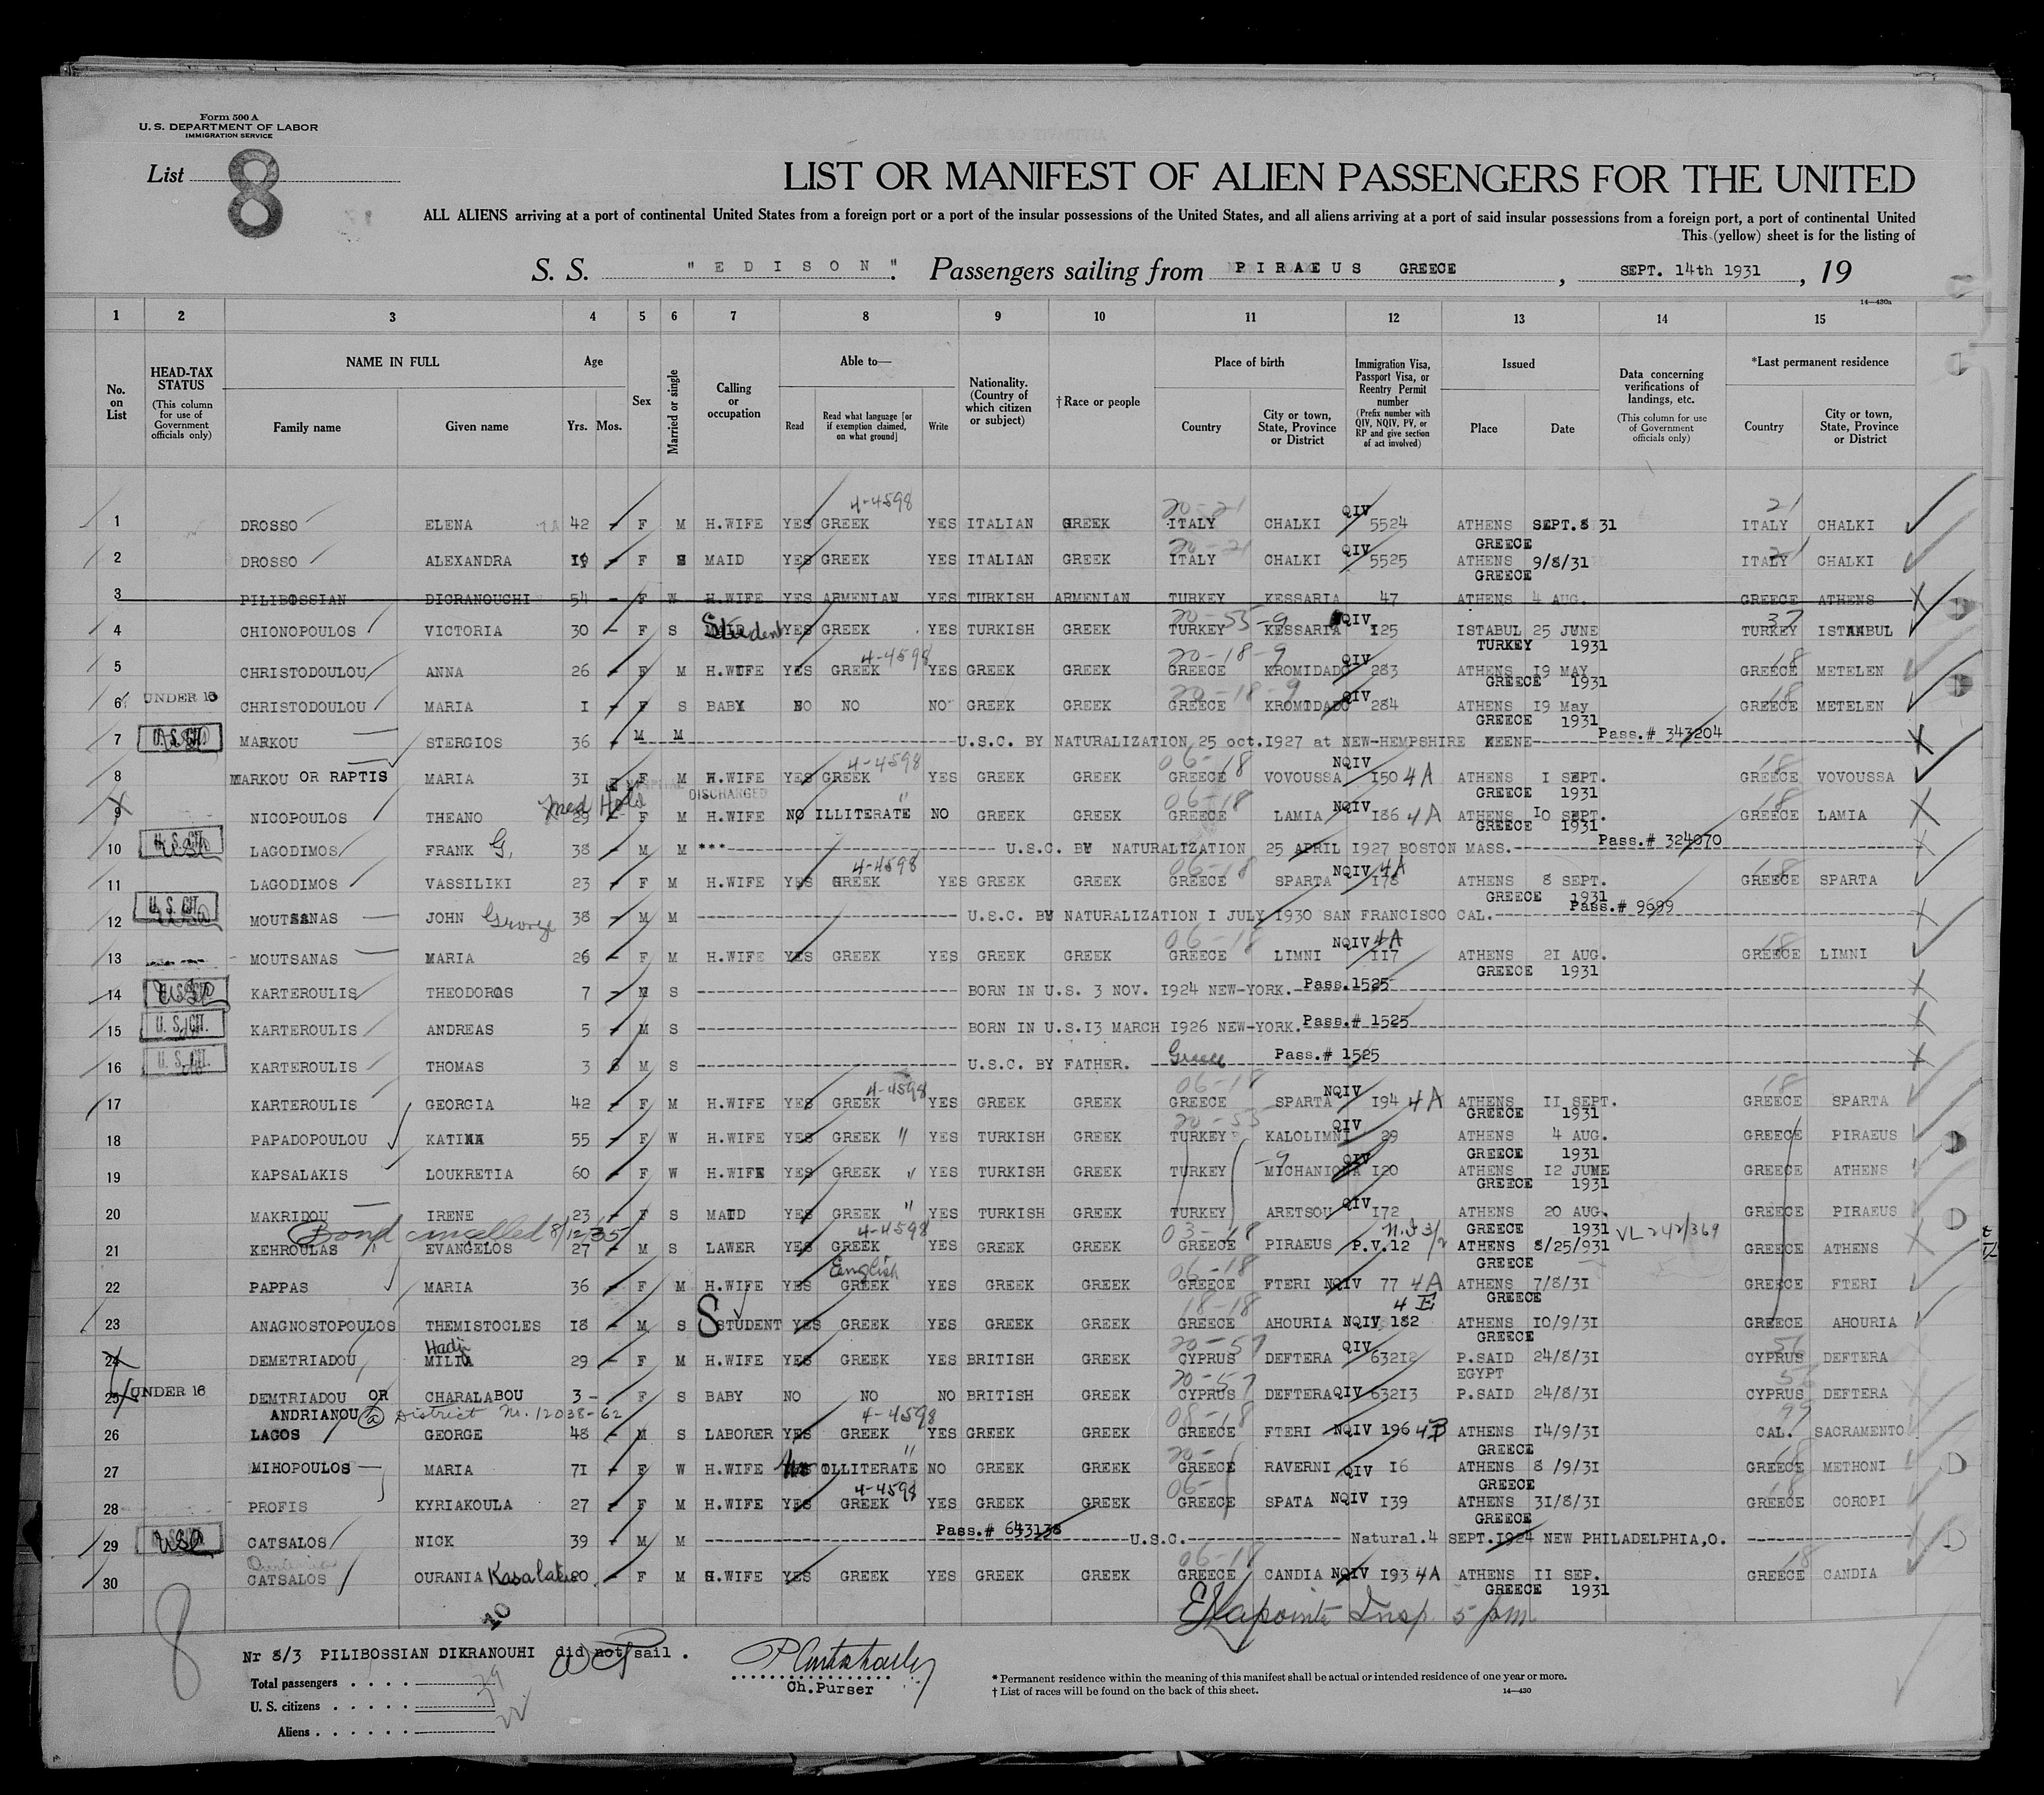 Form 500 A
U. S. DEPARTMENT OF LABOR
IMMIGRATION SERVICE
List 8
LIST OR MANIFEST OF ALIEN PASSENGERS FOR THE UNITED
ALL ALIENS arriving at a port of continental United States from a foreign port or a port of the insular possessions of the United States, and all aliens arriving at a port of said insular possessions from a foreign port, a port of continental United
This (yellow) sheet is for the listing of
S. S. "EDISON". Passengers sailing from PIRAEUS GREECE, SEPT. 14th 1931, 19
14—430a
1 2 3 4 5 6 7 8 9 10 11 12 13 14 15
No. on List
HEAD-TAX STATUS (This column for use of Government officials only)
NAME IN FULL Family name Given name
Age Yrs. Mos.
Sex
Married or single
Calling or occupation
Able to— Read Read what language [or if exemption claimed, on what ground] Write
Nationality. (Country of which citizen or subject)
† Race or people
Place of birth Country City or town, State, Province or District
Immigration Visa, Passport Visa, or Reentry Permit number (Prefix number with QIV, NQIV, PV, or RP and give section of act involved)
Issued Place Date
Data concerning verifications of landings, etc. (This column for use of Government officials only)
*Last permanent residence Country City or town, State, Province or District
4-4598 20-21 QIV 21
1 DROSSO ELENA 42 - F M H.WIFE YES GREEK YES ITALIAN GREEK ITALY CHALKI 5524 ATHENS SEPT.8 31 ITALY CHALKI
GREECE
20-21 QIV 21
2 DROSSO ALEXANDRA 19 - F S MAID YES GREEK YES ITALIAN GREEK ITALY CHALKI 5525 ATHENS 9/8/31 ITALY CHALKI
GREECE
3 PILIBOSSIAN DICRANOUCHI 54 - F W H.WIFE YES ARMENIAN YES TURKISH ARMENIAN TURKEY KESSARIA 47 ATHENS 4 AUG. GREECE ATHENS
20-55-9 QIV 37
4 CHIONOPOULOS VICTORIA 30 - F S Student YES GREEK YES TURKISH GREEK TURKEY KESSARIA I25 ISTABUL 25 JUNE TURKEY ISTANBUL
TURKEY 1931
4-4598 20-18-9 QIV 18
5 CHRISTODOULOU ANNA 26 - F M H.WIFE YES GREEK YES GREEK GREEK GREECE KROMIDADO 283 ATHENS 19 MAY GREECE METELEN
GREECE 1931
20-18-9 QIV 18
6 UNDER 16 CHRISTODOULOU MARIA I - F S BABY NO NO NO GREEK GREEK GREECE KROMIDADO 284 ATHENS 19 May GREECE METELEN
GREECE 1931
7 U. S. CIT. MARKOU STERGIOS 36 - M M U.S.C. BY NATURALIZATION 25 oct.I927 at NEW-HEMPSHIRE KEENE Pass.# 343204
4-4598 06-18 NQIV 18
8 MARKOU OR RAPTIS MARIA 3I F M H.WIFE YES GREEK YES GREEK GREEK GREECE VOVOUSSA I50 4A ATHENS I SEPT. GREECE VOVOUSSA
GREECE 1931
Med Hold DISCHARGED 06-18 NQIV 18
9 NICOPOULOS THEANO 29 - F M H.WIFE NO ILLITERATE NO GREEK GREEK GREECE LAMIA I86 4A ATHENS I0 SEPT. GREECE LAMIA
GREECE 1931
10 U. S. CIT. LAGODIMOS FRANK G. 38 - M M *** U.S.C. BY NATURALIZATION 25 APRIL I927 BOSTON MASS. Pass.# 324070
4-4598 06-18 NQIV 4A 18
11 LAGODIMOS VASSILIKI 23 - F M H.WIFE YES GREEK YES GREEK GREEK GREECE SPARTA I78 ATHENS 8 SEPT. GREECE SPARTA
GREECE 1931
12 U. S. CIT. MOUTSANAS JOHN George 38 - M M U.S.C. BY NATURALIZATION I JULY I930 SAN FRANCISCO CAL. Pass.# 9699
06-18 NQIV 4A 18
13 MOUTSANAS MARIA 26 - F M H.WIFE YES GREEK YES GREEK GREEK GREECE LIMNI II7 ATHENS 2I AUG. GREECE LIMNI
GREECE 1931
14 KARTEROULIS THEODOROS 7 - M S BORN IN U.S. 3 NOV. I924 NEW-YORK. Pass.1525
15 U. S. CIT. KARTEROULIS ANDREAS 5 - M S BORN IN U.S.I3 MARCH I926 NEW-YORK. Pass.# 1525
16 U. S. CIT. KARTEROULIS THOMAS 3 6 M S U.S.C. BY FATHER. Greece Pass.# 1525
4-4598 06-18 NQIV 18
17 KARTEROULIS GEORGIA 42 - F M H.WIFE YES GREEK YES GREEK GREEK GREECE SPARTA I94 4A ATHENS II SEPT. GREECE SPARTA
GREECE 1931
20-55 QIV
18 PAPADOPOULOU KATINA 55 - F W H.WIFE YES GREEK " YES TURKISH GREEK TURKEY KALOLIMNI 29 ATHENS 4 AUG. GREECE PIRAEUS
GREECE 1931
-9 QIV
19 KAPSALAKIS LOUKRETIA 60 - F W H.WIFE YES GREEK " YES TURKISH GREEK TURKEY MICHANIONA I20 ATHENS I2 JUNE GREECE ATHENS
GREECE 1931
QIV
20 MAKRIDOU IRENE 23 - F S MAID YES GREEK " YES TURKISH GREEK TURKEY ARETSOU I72 ATHENS 20 AUG. GREECE PIRAEUS
GREECE 1931
Bond cancelled 8/12/35 4-4598 03-18 VL 242/369
21 KEHROULAS EVANGELOS 27 - M S LAWER YES GREEK YES GREEK GREEK GREECE PIRAEUS P.V.12 ATHENS 8/25/931 GREECE ATHENS
GREECE
English 06-18
22 PAPPAS MARIA 36 - F M H.WIFE YES GREEK YES GREEK GREEK GREECE FTERI NQIV 77 4A ATHENS 7/8/3I GREECE FTERI
GREECE
18-18 4 E
23 ANAGNOSTOPOULOS THEMISTOCLES I8 - M S STUDENT YES GREEK YES GREEK GREEK GREECE AHOURIA NQIV 182 ATHENS I0/9/3I GREECE AHOURIA
GREECE
Hadji 20-57 QIV 56
24 DEMETRIADOU MILIA 29 - F M H.WIFE YES GREEK YES BRITISH GREEK CYPRUS DEFTERA 632I2 P.SAID 24/8/3I CYPRUS DEFTERA
EGYPT
20-57 56
25 UNDER 16 DEMTRIADOU OR CHARALABOU 3 - F S BABY NO NO NO BRITISH GREEK CYPRUS DEFTERA QIV 632I3 P.SAID 24/8/3I CYPRUS DEFTERA
ANDRIANOU District No. 12038-62 4-4598 08-18 99
26 LAGOS GEORGE 48 - M S LABORER YES GREEK YES GREEK GREEK GREECE FTERI NQIV 196 4B ATHENS I4/9/3I CAL. SACRAMENTO
GREECE
" 20- 18
27 MIHOPOULOS MARIA 7I - F W H.WIFE No ILLITERATE NO GREEK GREEK GREECE RAVERNI QIV I6 ATHENS 8 /9/3I GREECE METHONI
GREECE
4-4598 06- 18
28 PROFIS KYRIAKOULA 27 - F M H.WIFE YES GREEK YES GREEK GREEK GREECE SPATA NQIV I39 ATHENS 3I/8/3I GREECE COROPI
GREECE
29 USA CATSALOS NICK 39 - M M Pass.# 643138 U.S.C. Natural.4 SEPT.I924 NEW PHILADELPHIA,O.
06-18 18
30 CATSALOS OURANIA 20 - F M H.WIFE YES GREEK YES GREEK GREEK GREECE CANDIA NQIV I93 4A ATHENS II SEP. GREECE CANDIA
GREECE 1931
10
Lapointe Insp. 5 pm
8
Nr 8/3 PILIBOSSIAN DIKRANOUHI did not sail .
Total passengers 29
U. S. citizens 7
Aliens 22
Ch.Purser
* Permanent residence within the meaning of this manifest shall be actual or intended residence of one year or more.
† List of races will be found on the back of this sheet.
14—430